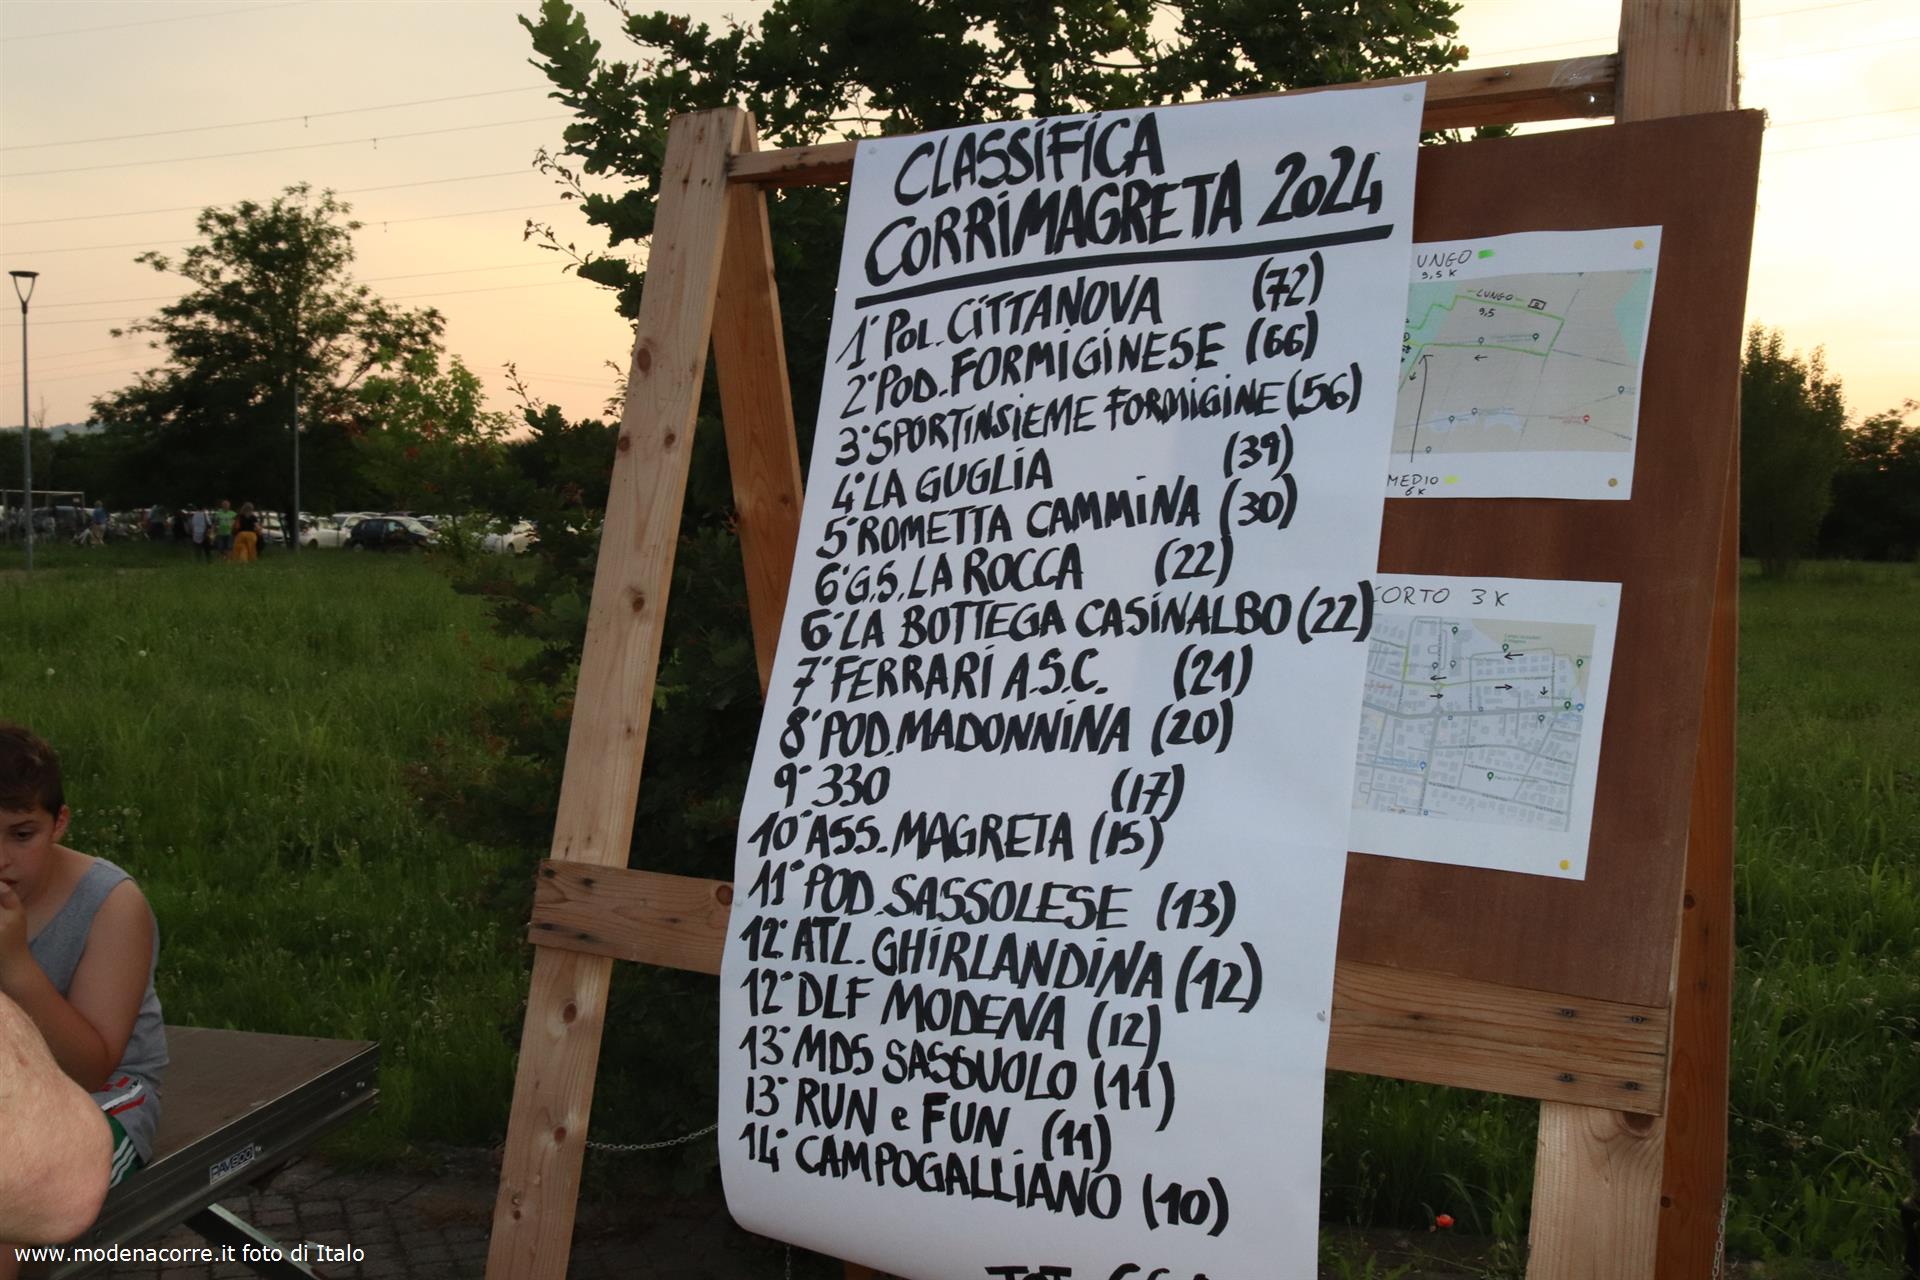 CLASSIFICA
CORRIMAGRETA 2024
1° POL. CITTANOVA (72)
2° POD. FORMIGINESE (66)
3° SPORTINSIEME FORMIGINE (56)
4° LA GUGLIA (39)
5° ROMETTA CAMMINA (30)
6° G.S. LA ROCCA (22)
6° LA BOTTEGA CASINALBO (22)
7° FERRARI A.S.C. (21)
8° POD. MADONNINA (20)
9° 330 (17)
10° ASS. MAGRETA (15)
11° POD. SASSOLESE (13)
12° ATL. GHIRLANDINA (12)
12° DLF MODENA (12)
13° MDS SASSUOLO (11)
13° RUN e FUN (11)
14° CAMPOGALLIANO (10)
TOT.
UNGO
9,5 K
LUNGO
9,5
MEDIO
6 K
CORTO 3 K
www.modenacorre.it foto di Italo